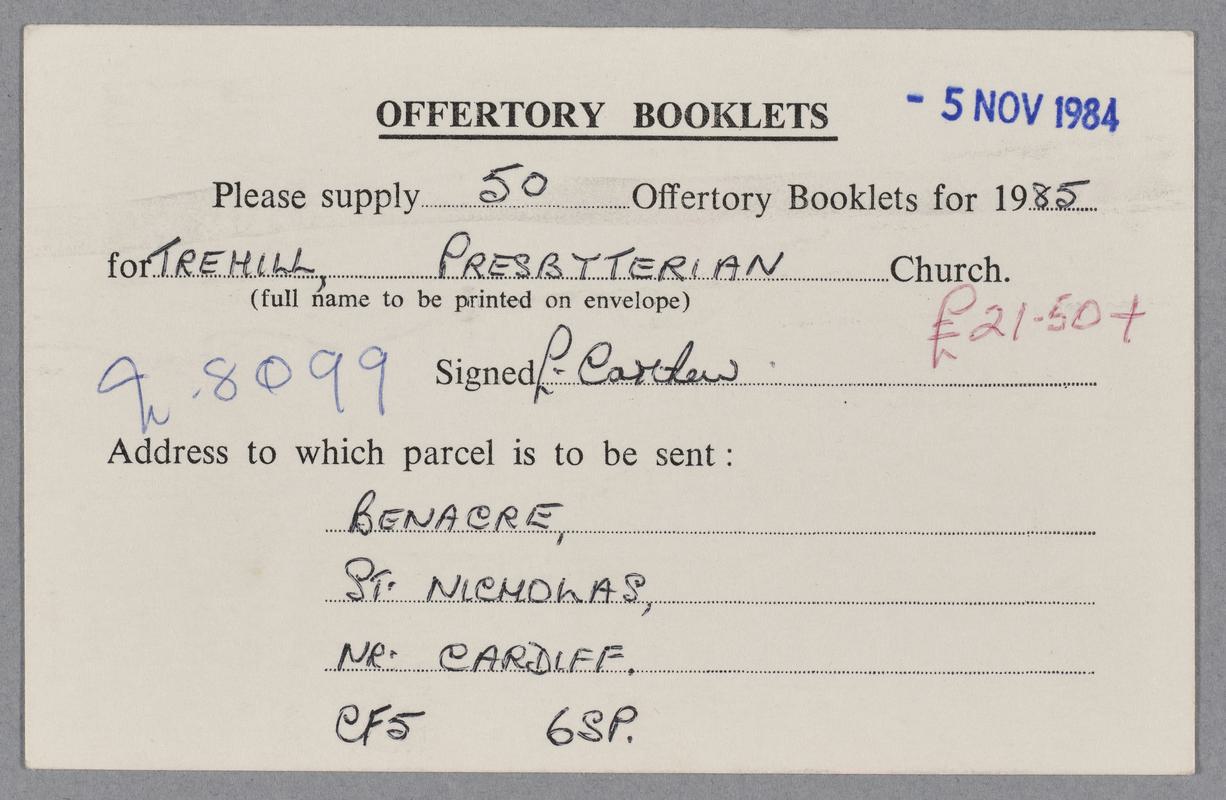 OFFERTORY BOOKLETS
- 5 NOV 1984
Please supply 50 Offertory Booklets for 1985
for TREHILL, PRESBYTERIAN Church.
(full name to be printed on envelope)
£21-50+
8099 Signed
Address to which parcel is to be sent :
BENACRE,
ST. NICHOLAS,
NR. CARDIFF.
CF5 6SP.